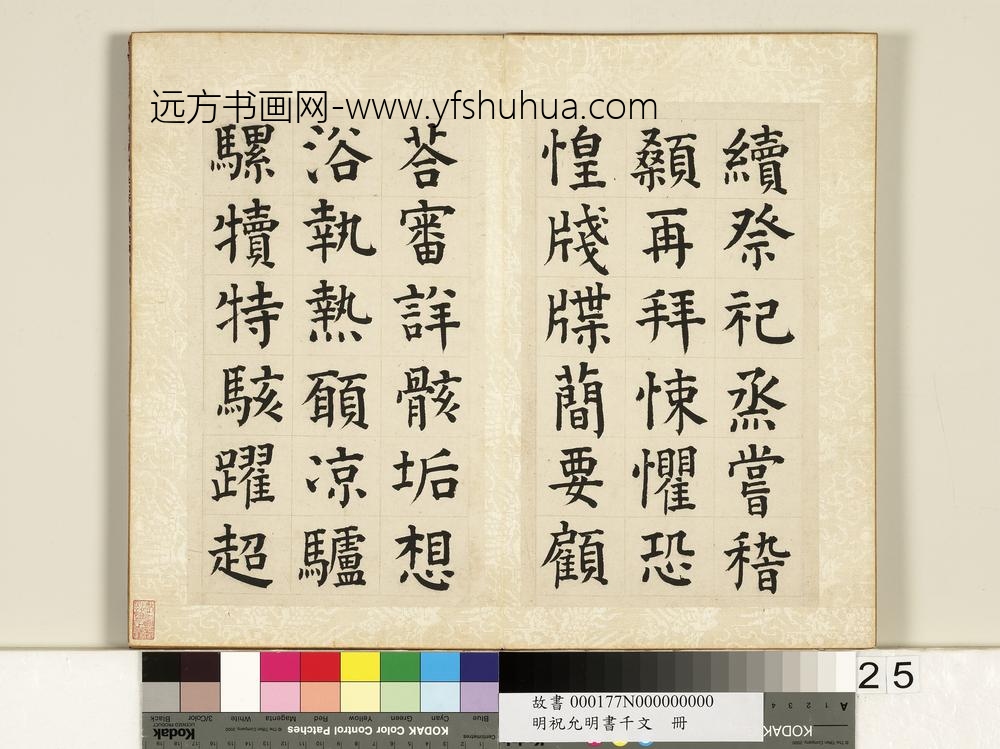 远方书画网-www.yfshuhua.com
續祭祀烝嘗稽
顙再拜悚懼恐
惶牋牒簡要顧
荅審詳骸垢想
浴執熱願凉驢
騾犢特駭躍超
25
故書 000177N000000000
明祝允明書千文 冊
KODAK
Kodak
KODAK Color Control Patches
Black
3/Color
White
Magenta
Red
Yellow
Green
Cyan
Blue
Centimetres
A 1 2 3 4